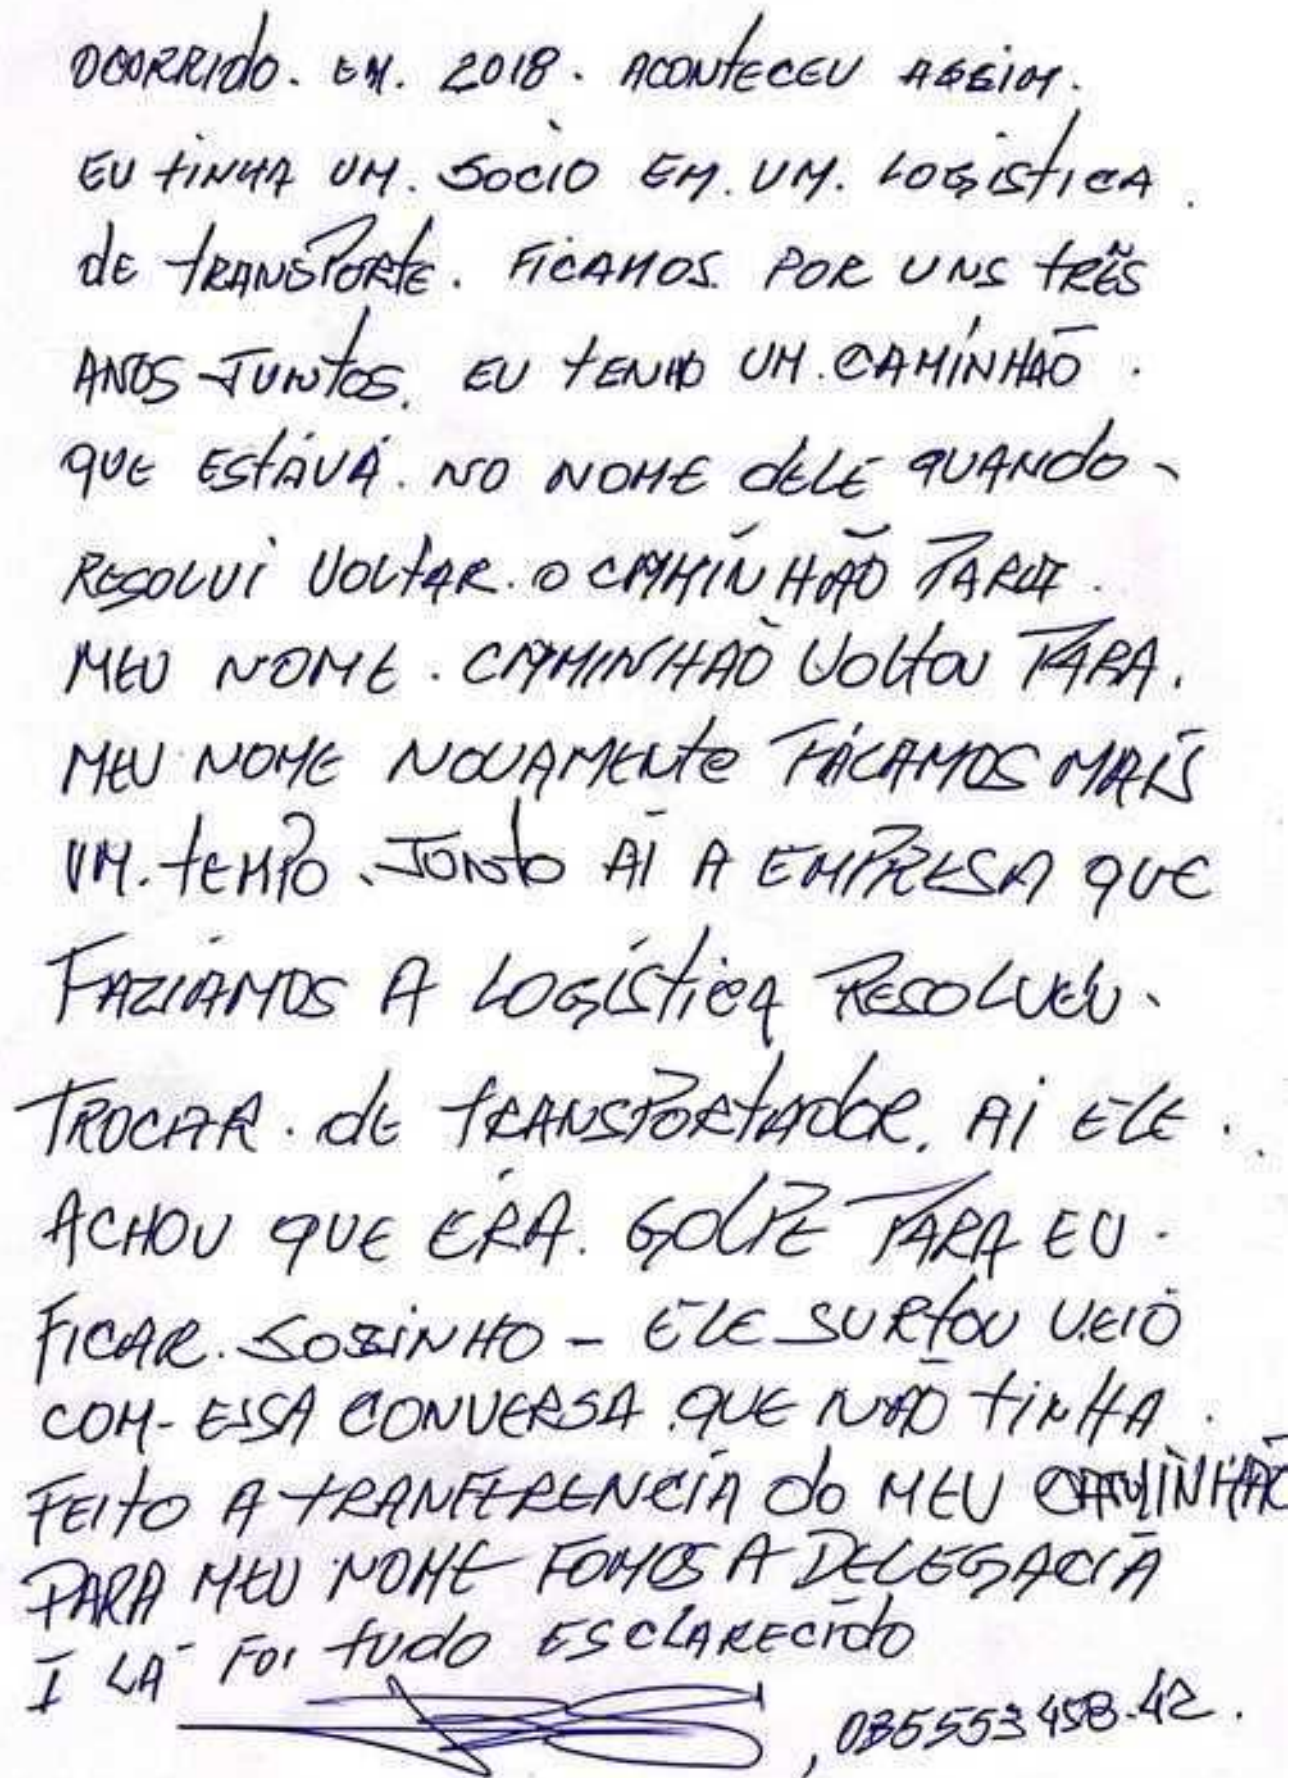 OCORRIDO. EM. 2018. ACONTECEU ASSIM.
EU TINHA UM. SOCIO EM. UM. LOGISTICA.
DE TRANSPORTE. FICAMOS. POR UNS TRÊS
ANOS JUNTOS. EU TENHO UM. CAMINHÃO.
QUE ESTAVA. NO NOME DELE QUANDO
RESOLVI VOLTAR. O CAMINHÃO PARA.
MEU NOME. CAMINHÃO VOLTOU PARA.
MEU NOME NOVAMENTE FICAMOS MAIS
UM. TEMPO. JUNTO AI A EMPRESA QUE
FAZIAMOS A LOGÍSTICA RESOLVEU
TROCAR. DE TRANSPORTADOR. AI ELE.
ACHOU QUE ERA. GOLPE PARA EU.
FICAR. SOZINHO - ELE SURTOU VEIO
COM- ESSA CONVERSA. QUE NÃO TINHA.
FEITO A TRANFERENCIA DO MEU CAMINHÃO
PARA MEU NOME FOMOS A DELEGACIA
I LÁ FOI TUDO ESCLARECIDO
, 035553458-42.